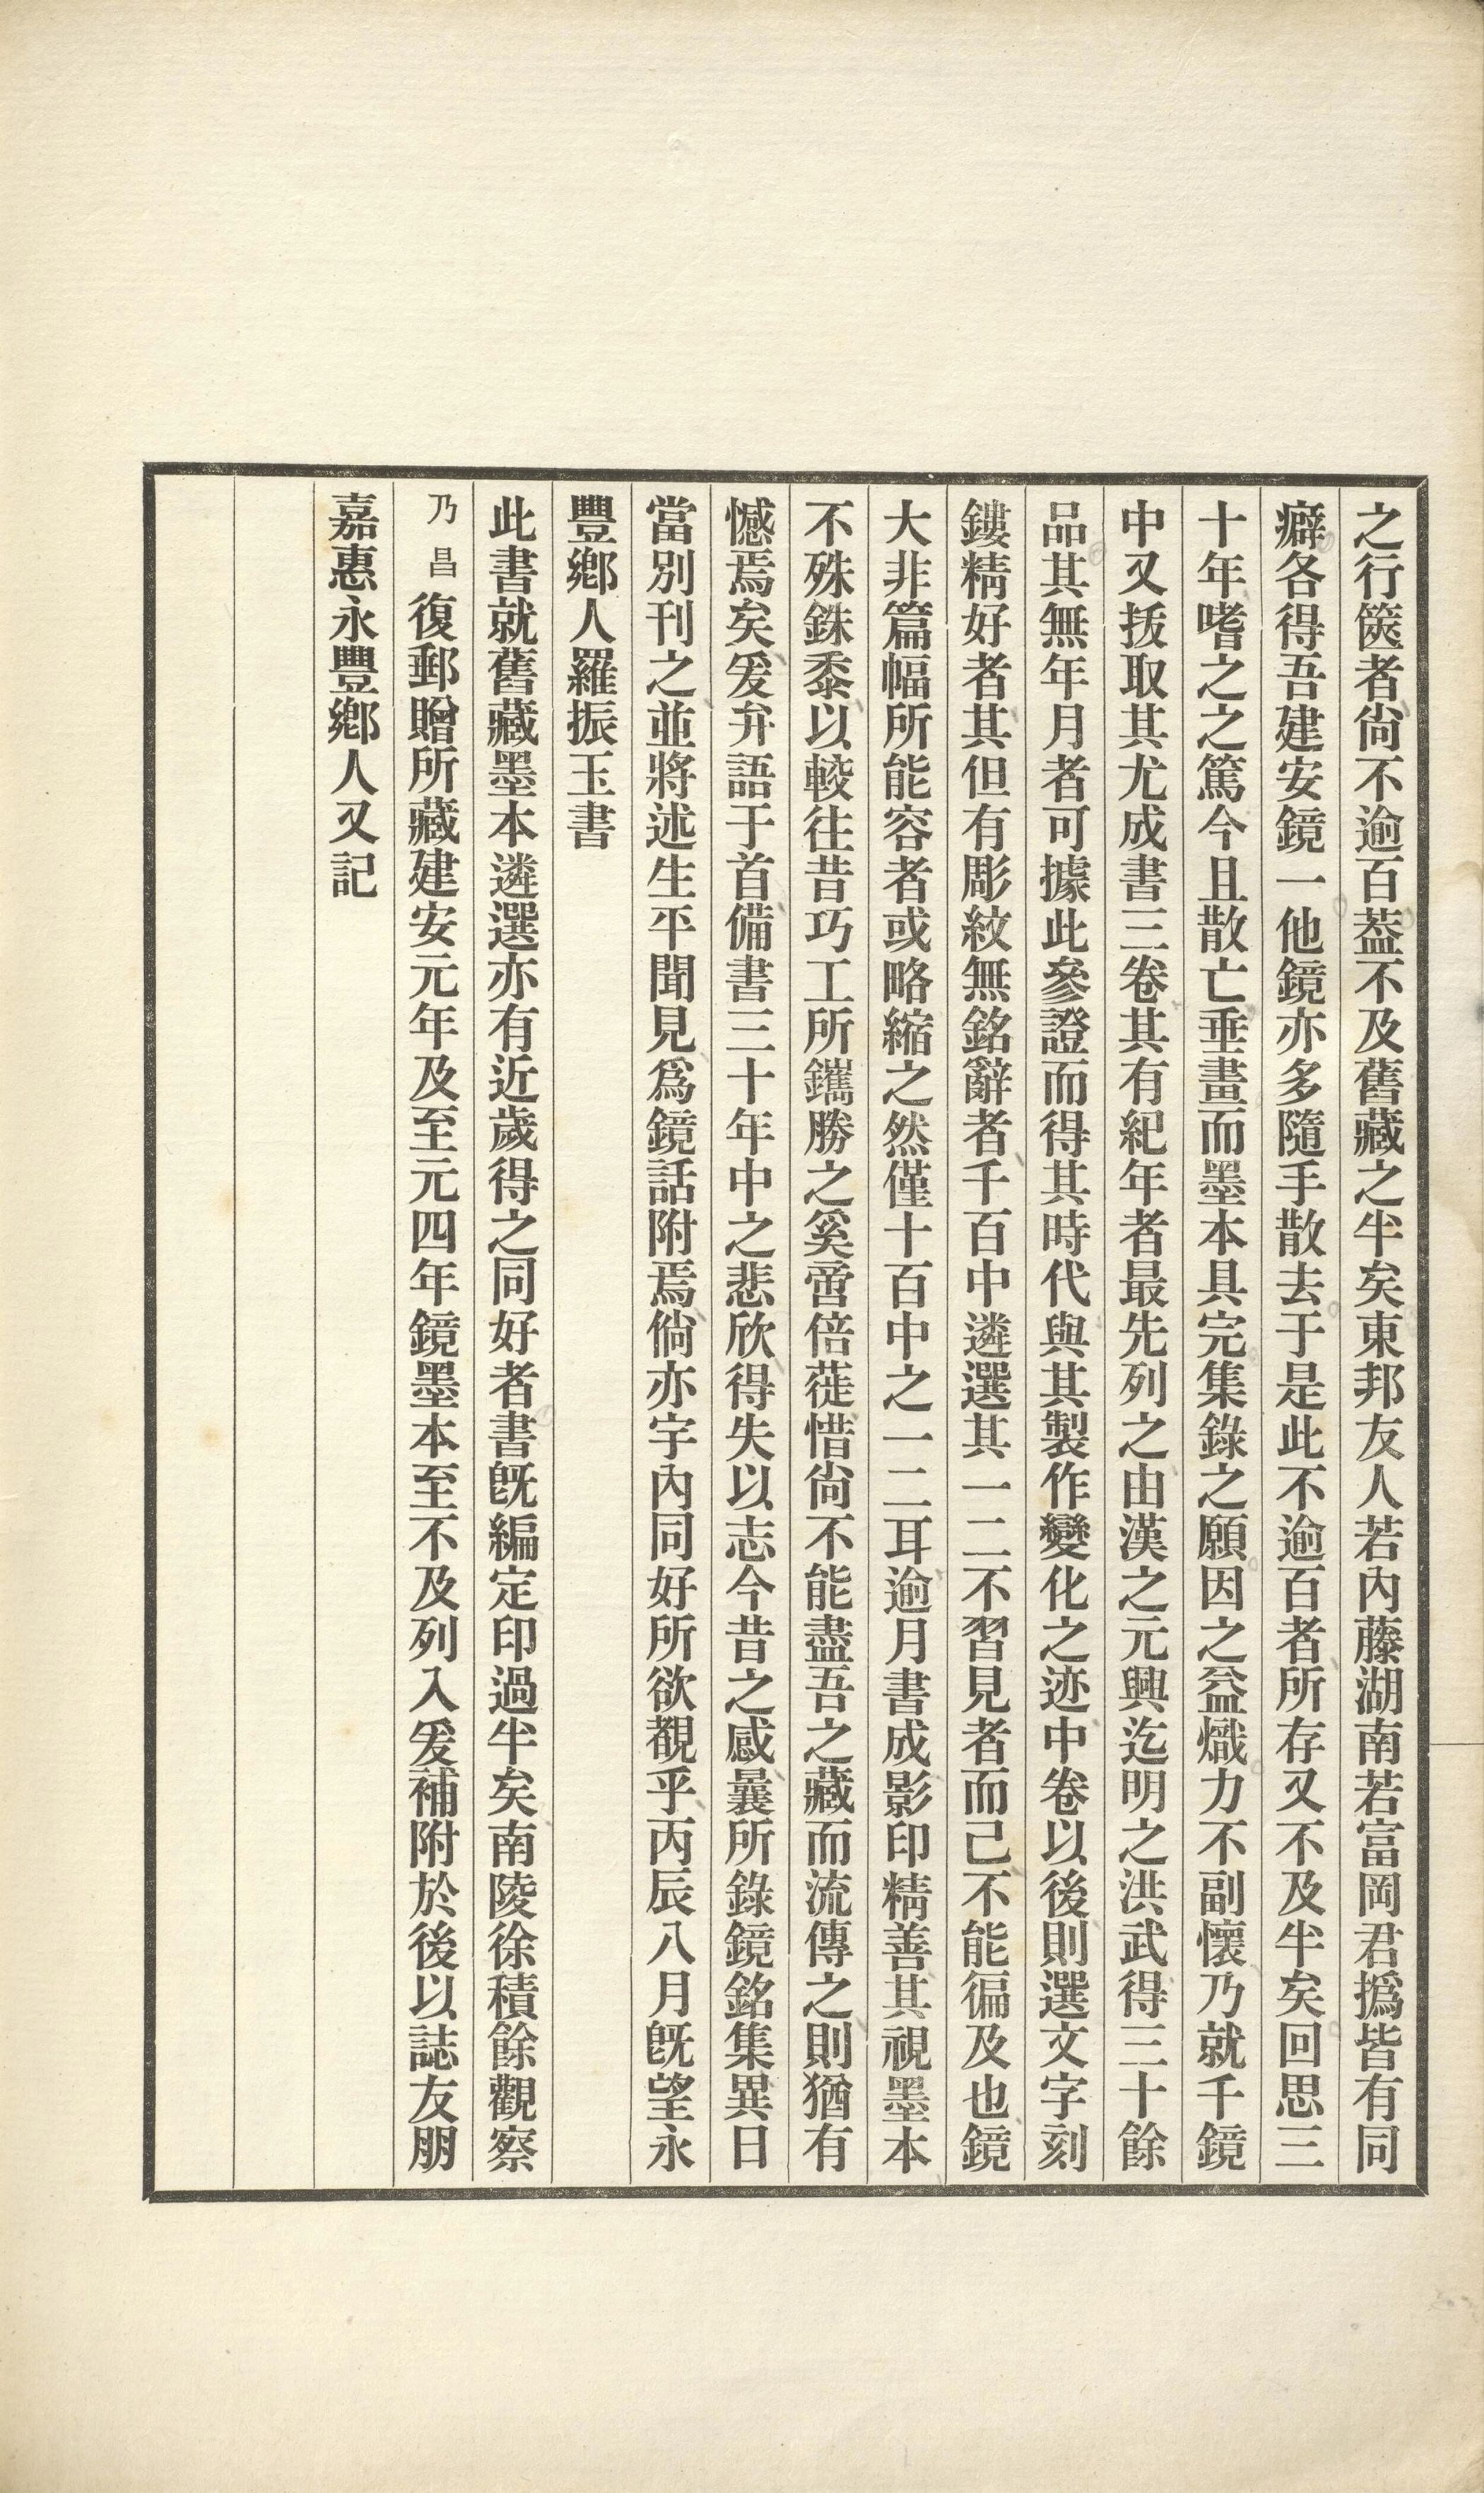 之行篋者尙不逾百葢不及舊藏之半矣東邦友人若內藤湖南若富岡君撝皆有同
癖各得吾建安鏡一他鏡亦多隨手散去于是此不逾百者所存又不及半矣回思三
十年嗜之之篤今且散亡垂盡而墨本具完集錄之願因之益熾力不副懷乃就千鏡
中又拔取其尤成書三卷其有紀年者最先列之由漢之元興迄明之洪武得三十餘
品其無年月者可據此參證而得其時代與其製作變化之迹中卷以後則選文字刻
鏤精好者其但有彫紋無銘辭者千百中遴選其一二不習見者而已不能徧及也鏡
大非篇幅所能容者或略縮之然僅十百中之一二耳逾月書成影印精善其視墨本
不殊銖黍以較往昔巧工所鑴勝之奚啻倍蓰惜尙不能盡吾之藏而流傳之則猶有
憾焉矣爰弁語于首備書三十年中之悲欣得失以志今昔之感曩所錄鏡銘集異日
當別刊之並將述生平聞見爲鏡話附焉倘亦宇內同好所欲覩乎丙辰八月旣望永
豐鄉人羅振玉書
此書就舊藏墨本遴選亦有近歲得之同好者書旣編定印過半矣南陵徐積餘觀察
乃昌復郵贈所藏建安元年及至元四年鏡墨本至不及列入爰補附於後以誌友朋
嘉惠永豐鄉人又記